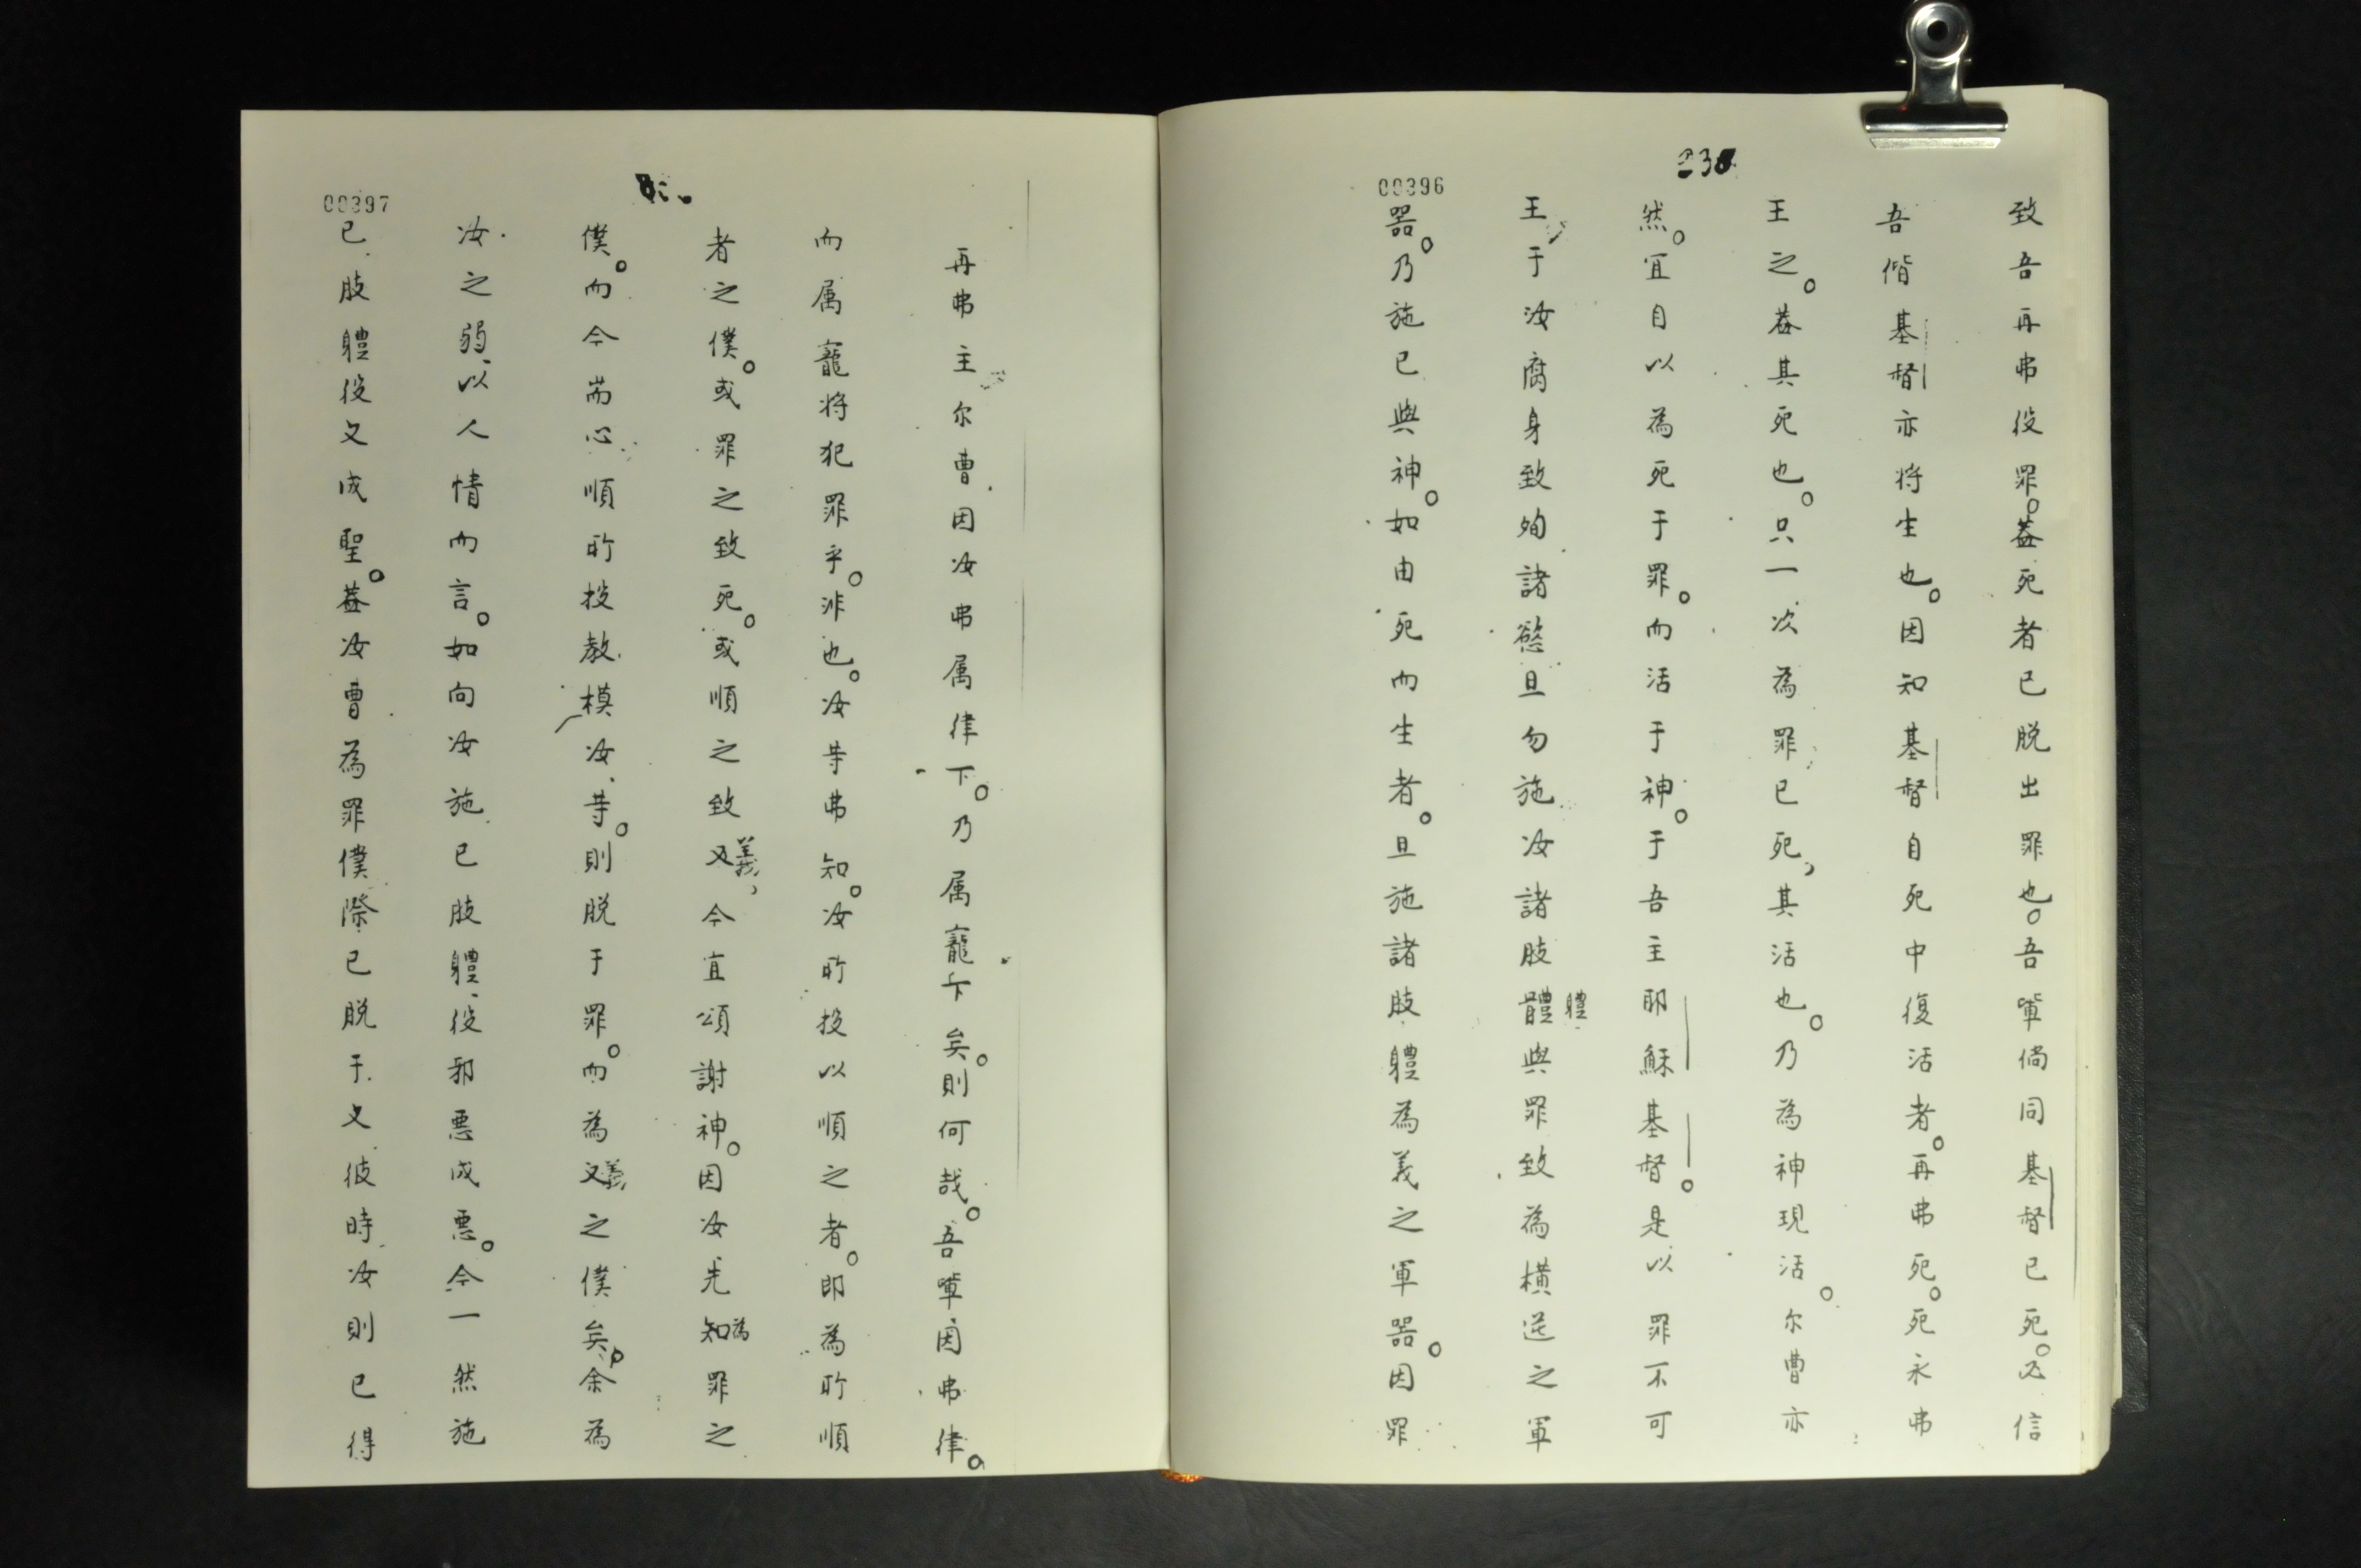 致吾再弗役罪。蓋死者已脱出罪也。吾軰倘同基督已死。必信
吾偕基督亦将生也。因知基督自死中復活者。再弗死。死永弗
王之。蓋其死也。只一次為罪已死，其活也。乃為神現活。尔曹亦
然。宜自以為死于罪。而活于神。于吾主耶穌基督。是以罪不可
王于汝腐身致殉諸慾且勿施汝諸肢體軆與罪致為橫逆之軍
噐。乃施已與神。如由死而生者。且施諸肢軆為義之軍噐。因罪
00396
再弗主尔曹因汝弗属律下。乃属寵下矣。則何哉。吾軰因弗律。
而属寵将犯罪乎。非也。汝等弗知。汝所投以順之者。即為所順
者之僕。或罪之致死。或順之致义義，今宜頌謝神。因汝先知為罪之
僕。而今耑心順所投教模汝等。則脱于罪。而為义義之僕矣。余為
汝之弱、以人情而言。如向汝施已肢軆、役邪悪成悪。今一然施
已肢軆役义成聖。蓋汝曹為罪僕際已脱于义彼時汝則已得
00397